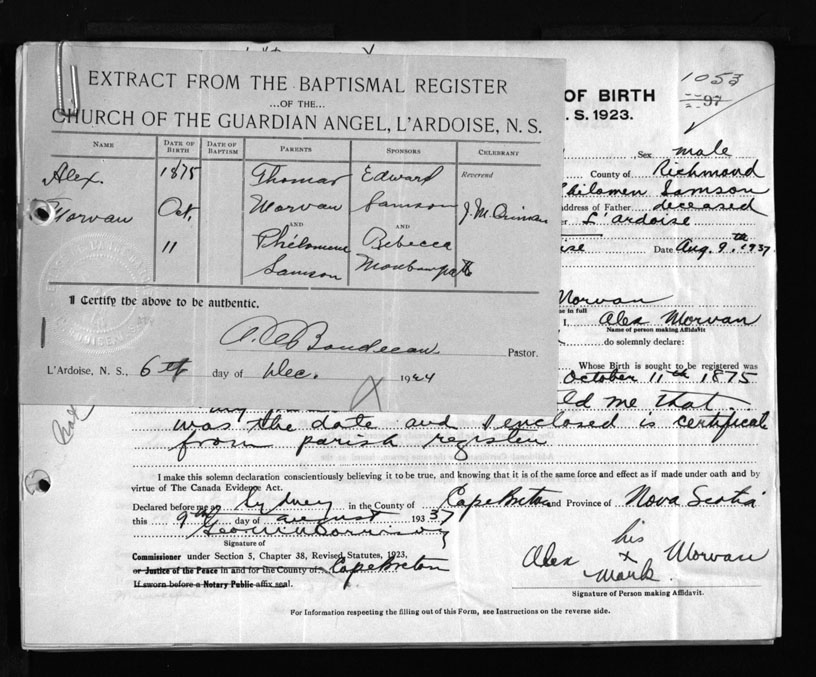 EXTRACT FROM THE BAPTISMAL REGISTER
...OF THE...
CHURCH OF THE GUARDIAN ANGEL, L'ARDOISE, N. S.
NAME DATE OF BIRTH DATE OF BAPTISM PARENTS SPONSORS CELEBRANT
Alex. 1875 Thomas Edward Reverend
Morvan Oct. Morvan Samson J. M.
AND AND
11 Phélomene Rebecca
Samson
I Certify the above to be authentic.
Pastor.
L'Ardoise, N. S., 6th day of Dec. 1924
1053
OF BIRTH
97
S. 1923.
Sex male
County of Richmond
Philomen Samson
Address of Father deceased
L'ardoise
Date Aug. 9.th 1937
Morvan
in full
I, Alex Morvan
Name of person making Affidavit
do solemnly declare:
Whose Birth is sought to be registered was
October 11th 1875
told me that
was the date and enclosed is certificate
from parish register
I make this solemn declaration conscientiously believing it to be true, and knowing that it is of the same force and effect as if made under oath and by
virtue of The Canada Evidence Act.
Declared before me in Sydney in the County of Cape Breton and Province of Nova Scotia
this 9th day of august 1937
Signature of
Commissioner under Section 5, Chapter 38, Revised Statutes, 1923,
or Justice of the Peace in and for the County of Cape Breton
If sworn before a Notary Public affix seal.
his
Alex x Morvan
Mark.
Signature of Person making Affidavit.
For Information respecting the filling out of this Form, see Instructions on the reverse side.